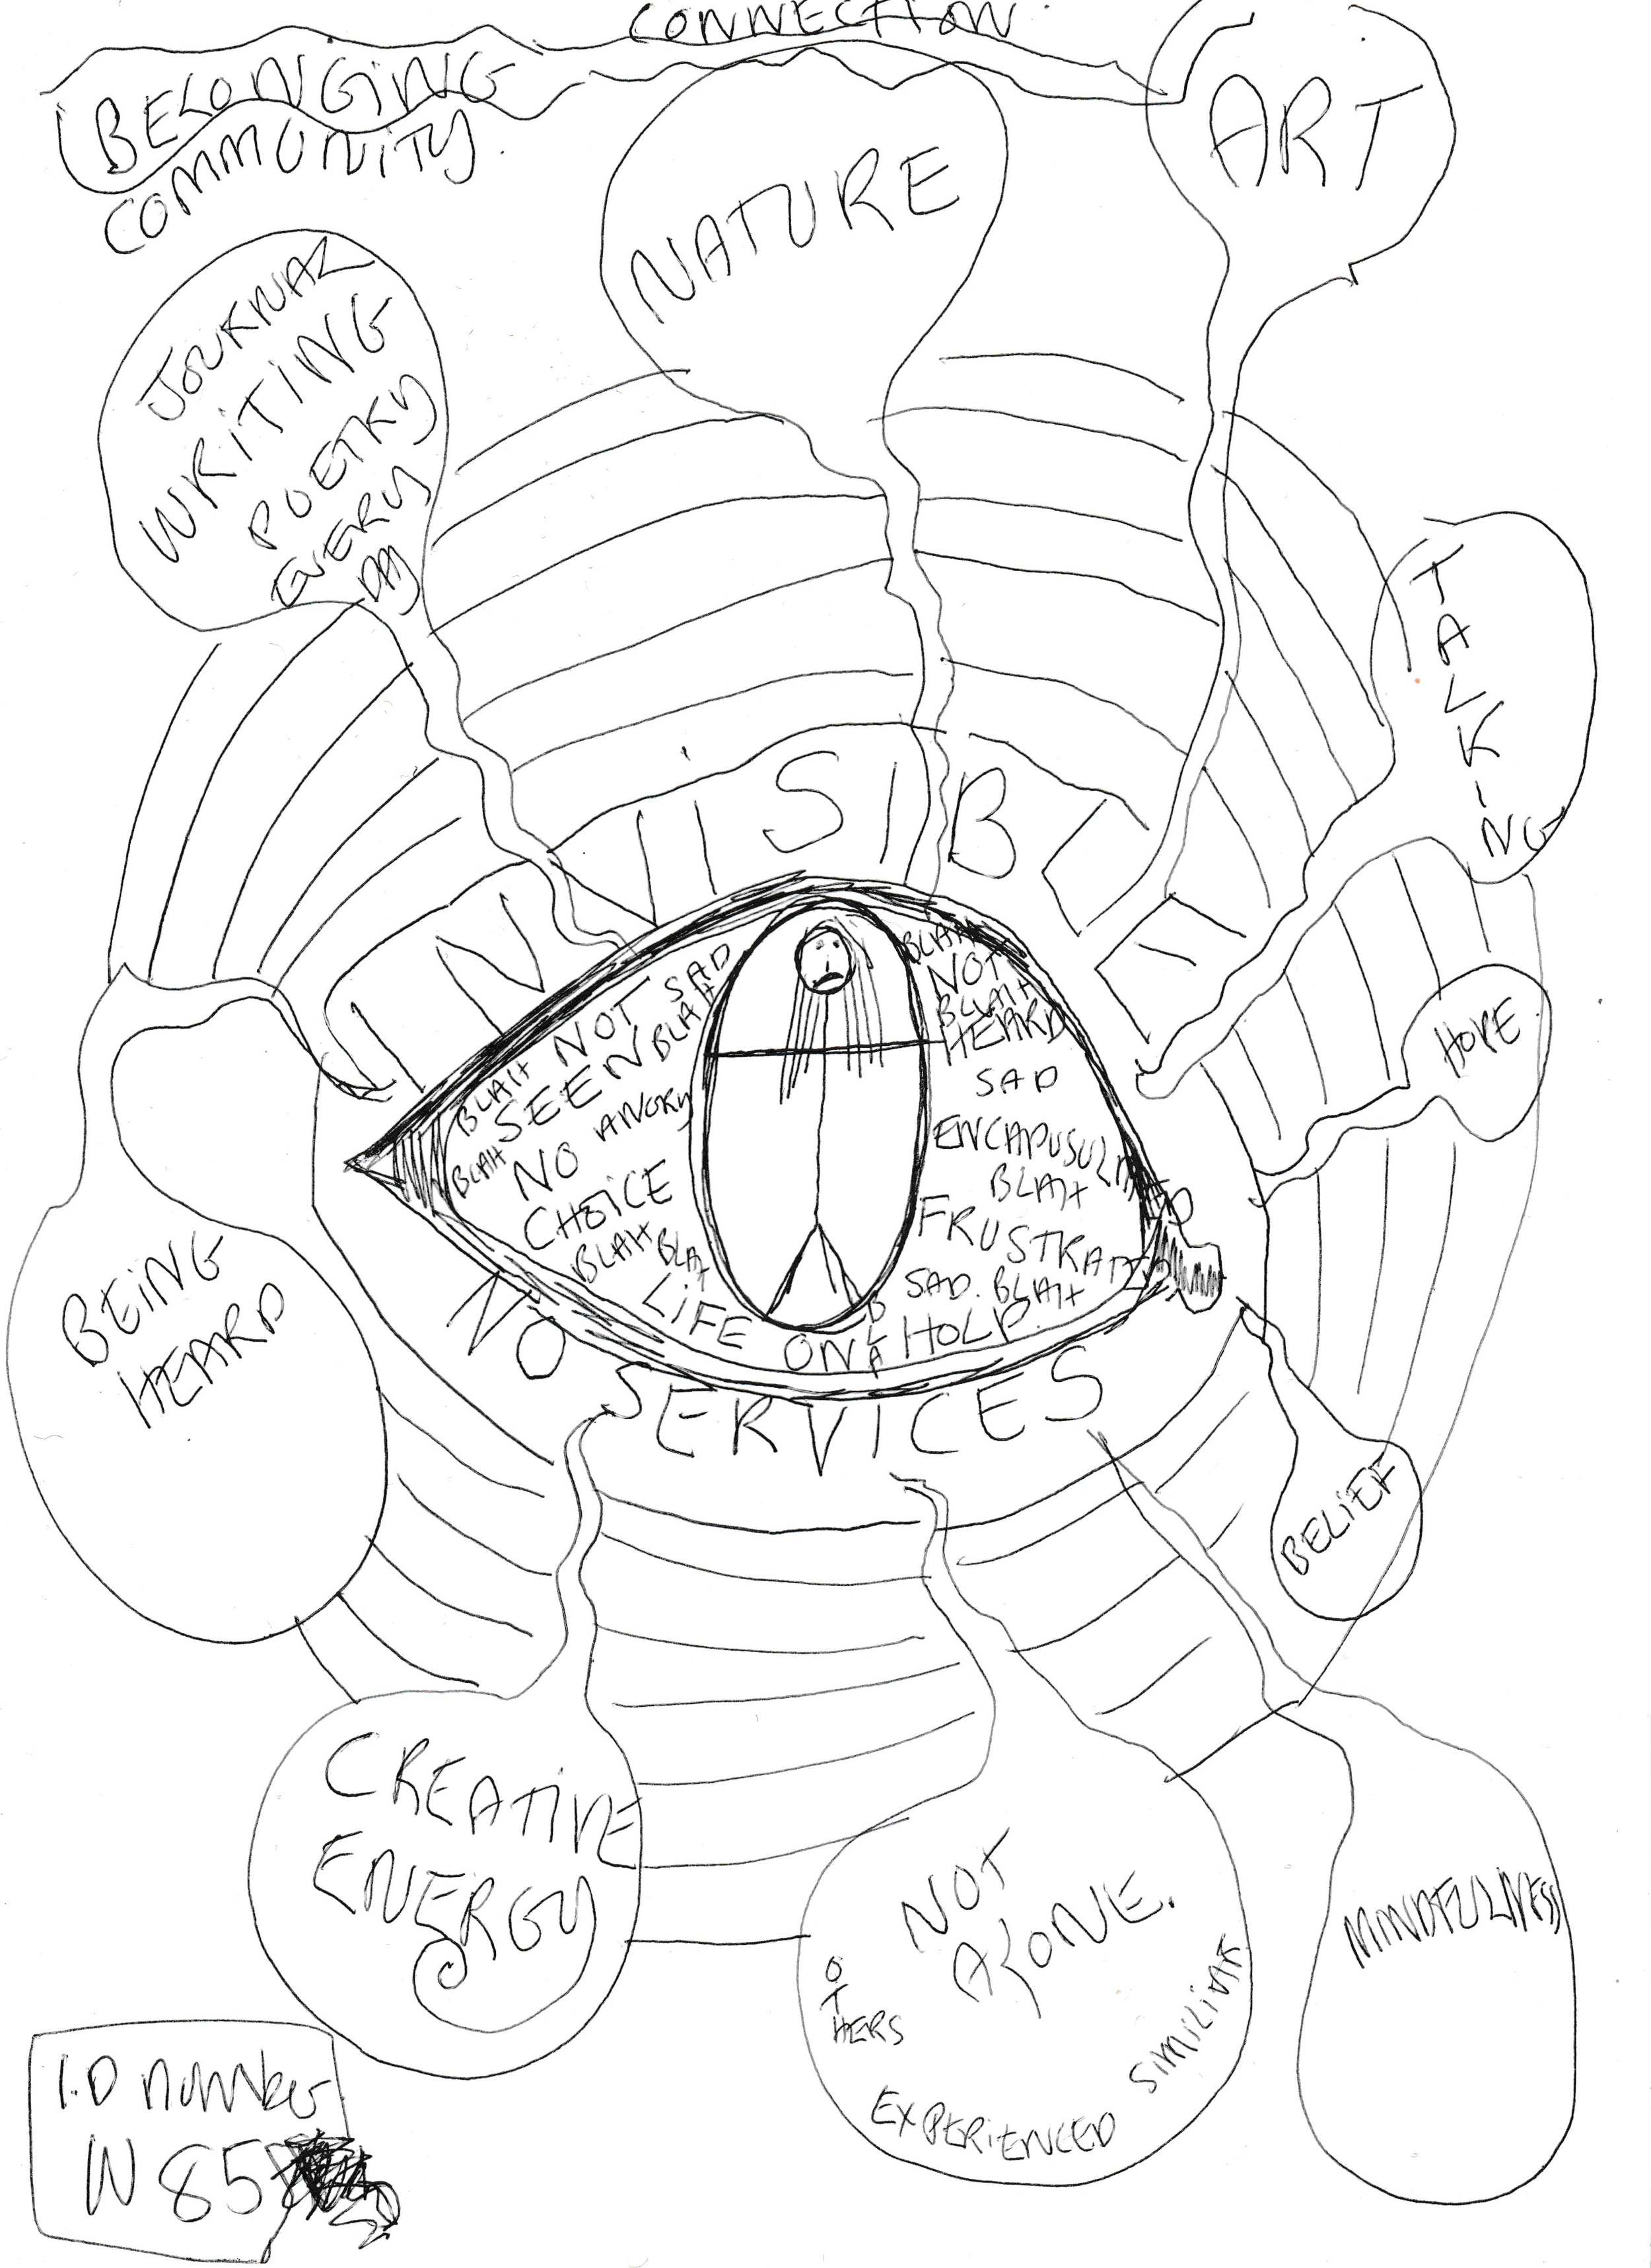 CONNECTION
BELONGING
COMMUNITY.
ART
NATURE
JOURNAL
WRITING
POETRY
EVERY
DAY
TALKING
INVISIBLY
HOPE
BEING
HEARD
BLAH NOT SAD
SEEN BLAH
BLAH
NO ANGRY
CHOICE
BLAH BLA
LIFE ON HOLP.
BLA
BLAH
NOT
BLAH
HEARD
SAD
ENCAPUSULATED
BLAH
FRUSTRATED
SAD. BLAH
NO SERVICES
BELIEF
CREATIVE
ENERGY
NOT
ALONE.
OTHERS
EXPERIENCED
SIMILIAR
MINDFULLNESS
I.D number
W 85